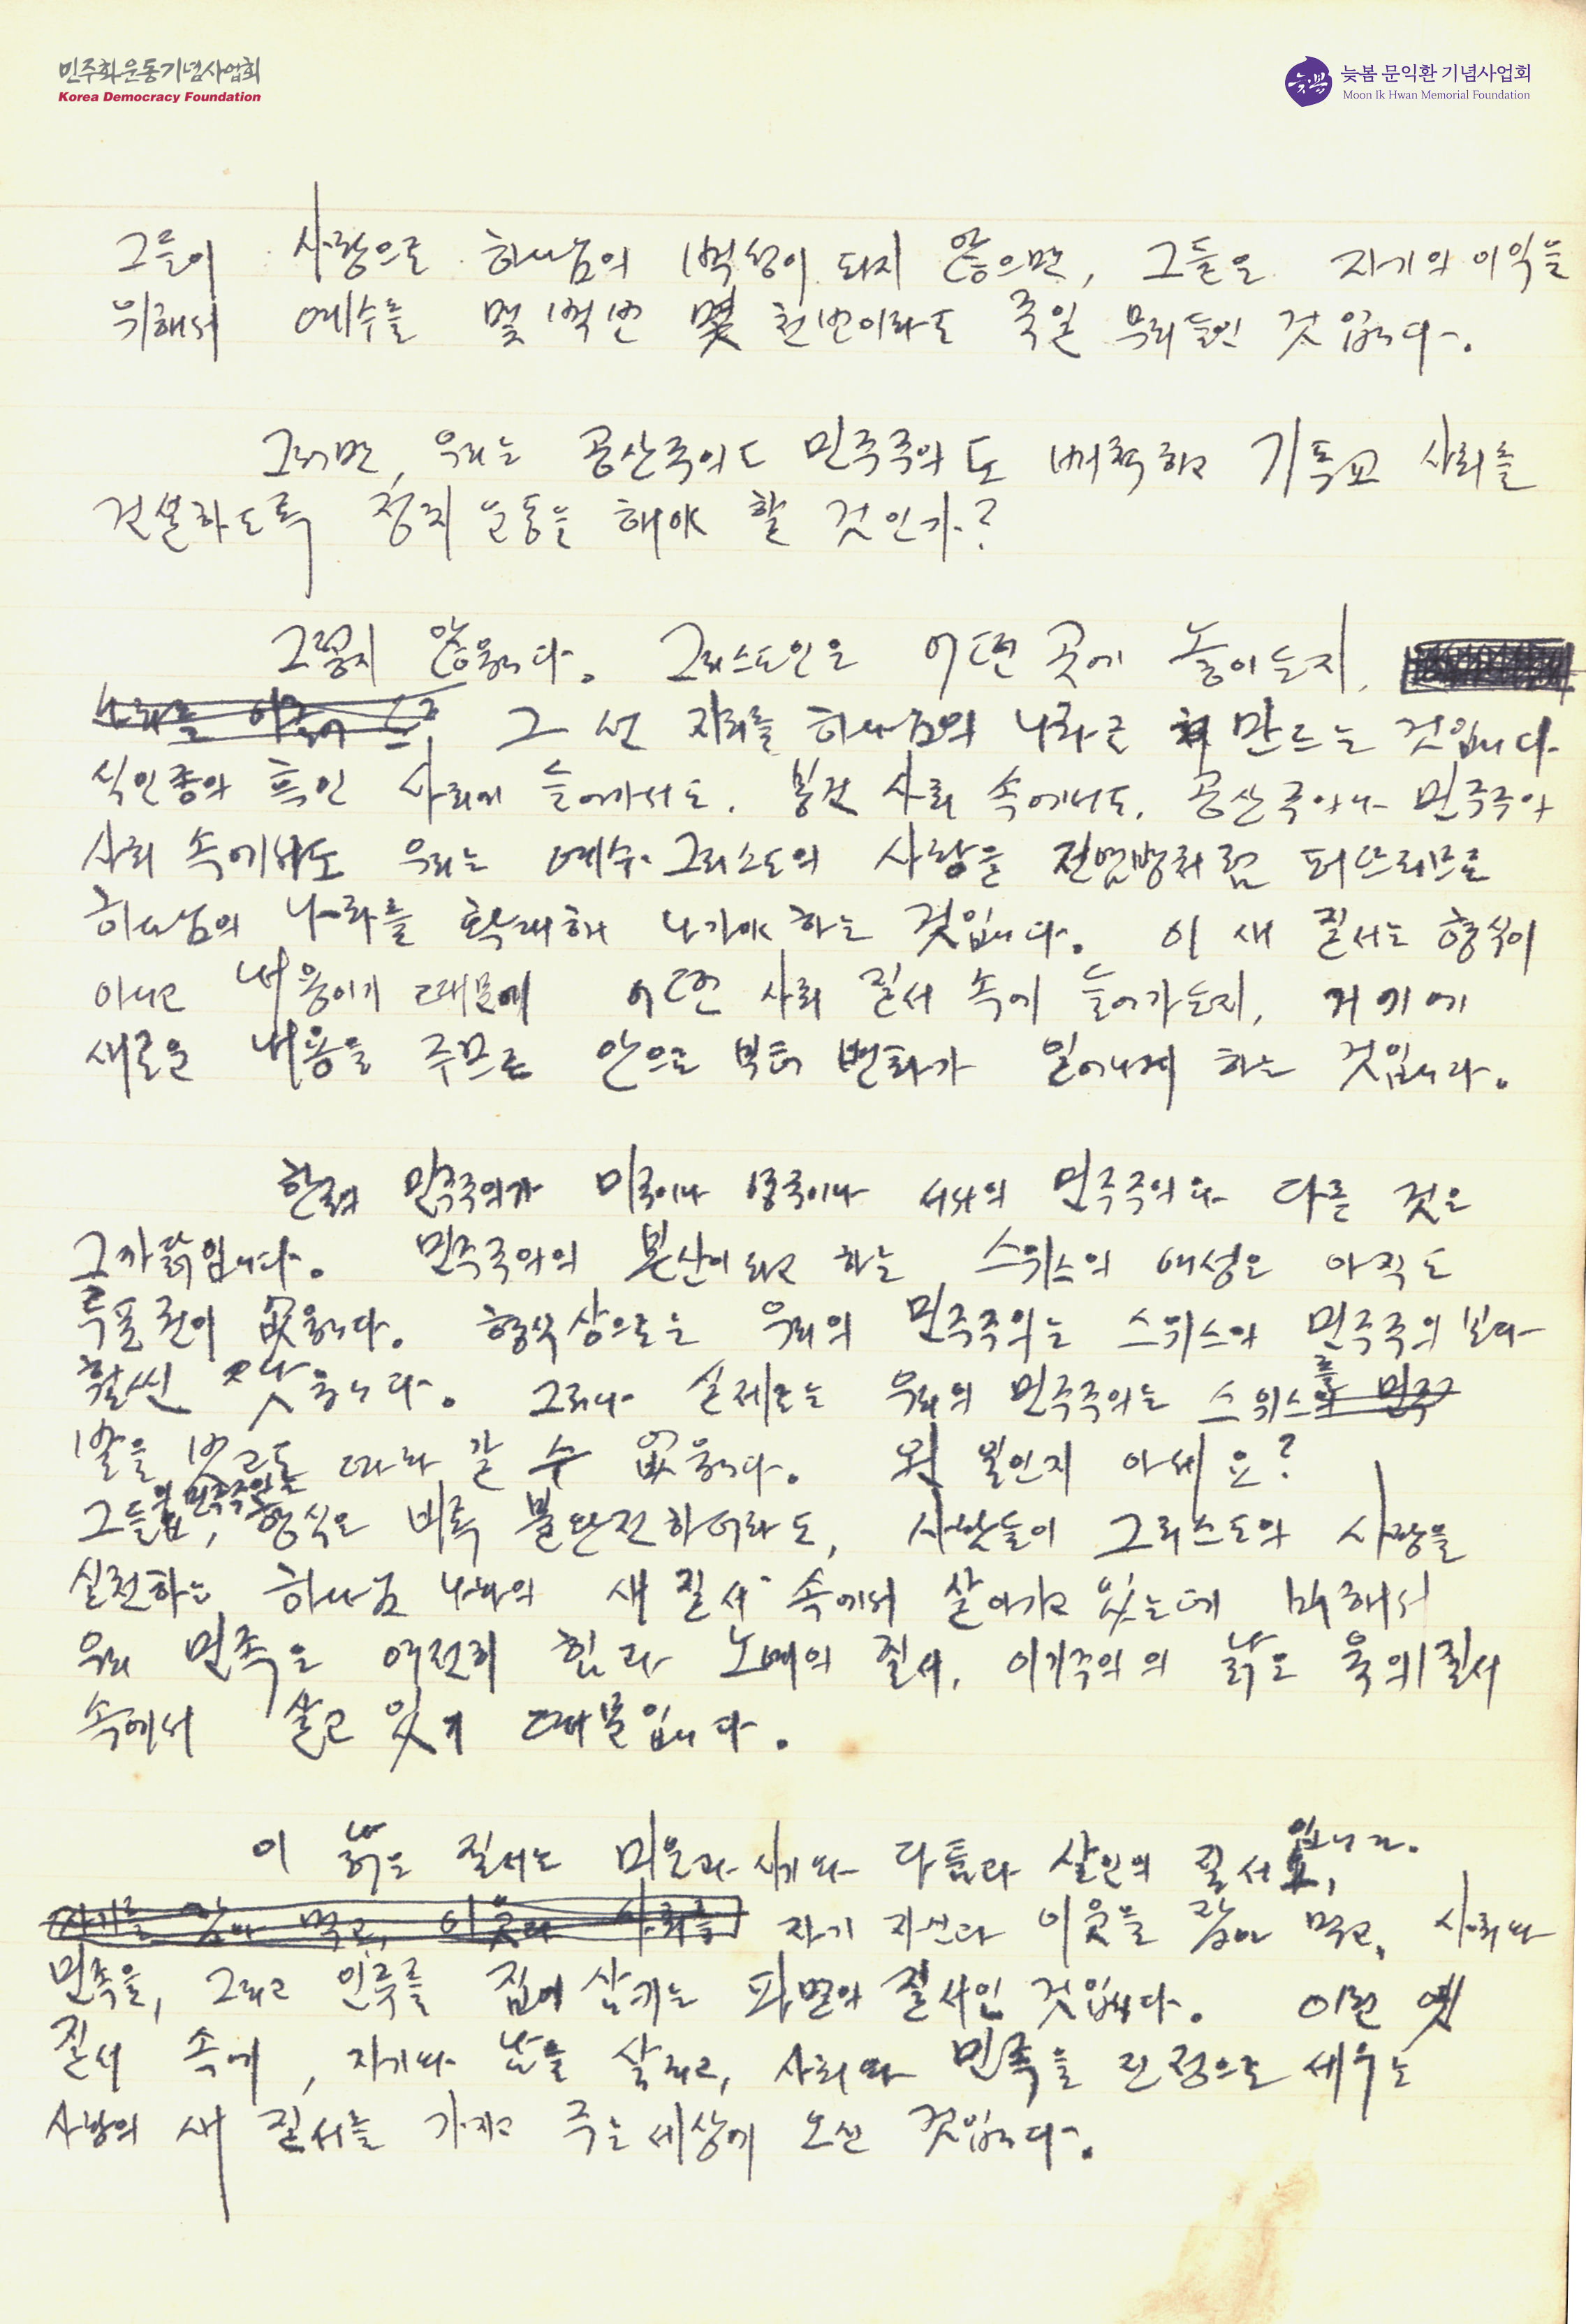 민주화운동기념사업회
Korea Democracy Foundation
늦봄
늦봄 문익환 기념사업회
Moon Ik Hwan Memorial Foundation
그들이 사랑으로 하나님의 백성이 되지 않으면, 그들은 자기의 이익을
위해서 예수를 몇 백번 몇 천번이라도 죽일 무리들인 것입니다.
그러면, 우리는 공산주의도 민주주의도 배척하고 기독교 사회를
건설하도록 정치운동을 해야 할 것인가?
그렇지 않습니다. 그리스도인은 어떤 곳에 놓이든지,
그 선 자리를 하나님의 나라로 만드는 것입니다
식인종의 흑인 사회에 들어가서도, 봉건 사회 속에서도, 공산주의나 민주주의
사회 속에서도 우리는 예수·그리스도의 사랑을 전염병처럼 퍼뜨리므로
하나님의 나라를 확대해 나가야 하는 것입니다. 이 새 질서는 형식이
아니고 내용이기 때문에 어떤 사회 질서 속에 들어가든지, 거기에
새로운 내용을 주므로 안으로 부터 변화가 일어나게 하는 것입니다.
한국의 민주주의가 미국이나 영국이나 서서의 민주주의와 다른 것은
그 까닭입니다. 민주주의의 본산이라고 하는 스위스의 여성은 아직도
투표권이 없습니다. 형식상으로는 우리의 민주주의는 스위스의 민주주의 보다
훨씬 낫습니다. 그러나 실제로는 우리의 민주주의는 스위스를
발을 벗고도 따라 갈 수 없습니다. 왠 일인지 아세요?
그들의 민주주의는, 형식은 비록 불완전하더라도, 사람들이 그리스도의 사랑을
실천하는 하나님 나라의 새 질서 속에서 살아가고 있는데 비해서
우리 민족은 여전히 힘과 노예의 질서, 이기주의의 낡은 옛 질서
속에서 살고 있기 때문입니다.
이 낡은 질서는 미움과 시기와 다툼과 살인의 질서입니다.
자기 자신과 이웃을 잡아 먹고, 사회와
민족을, 그리고 인류를 집어 삼키는 파멸의 질서인 것입니다. 이런 옛
질서 속에, 자기와 남을 살리고, 사회와 민족을 진정으로 세우는
사랑의 새 질서를 가지고 주는 세상에 오신 것입니다.